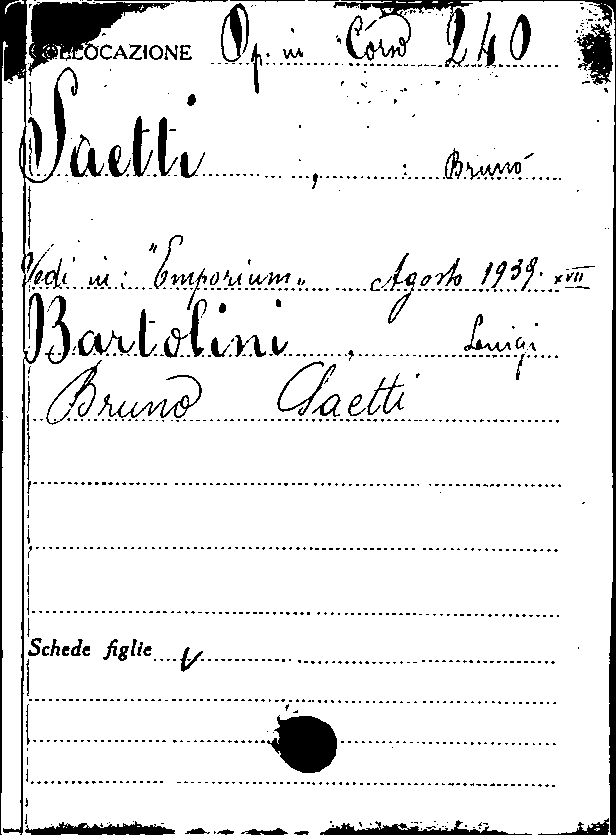 COLLOCAZIONE Op. in Corso 240
Saetti, : Bruno
Vedi in: "Emporium" Agosto 1939. XVII
Bartolini, Luigi
Bruno Saetti
Schede figlie V